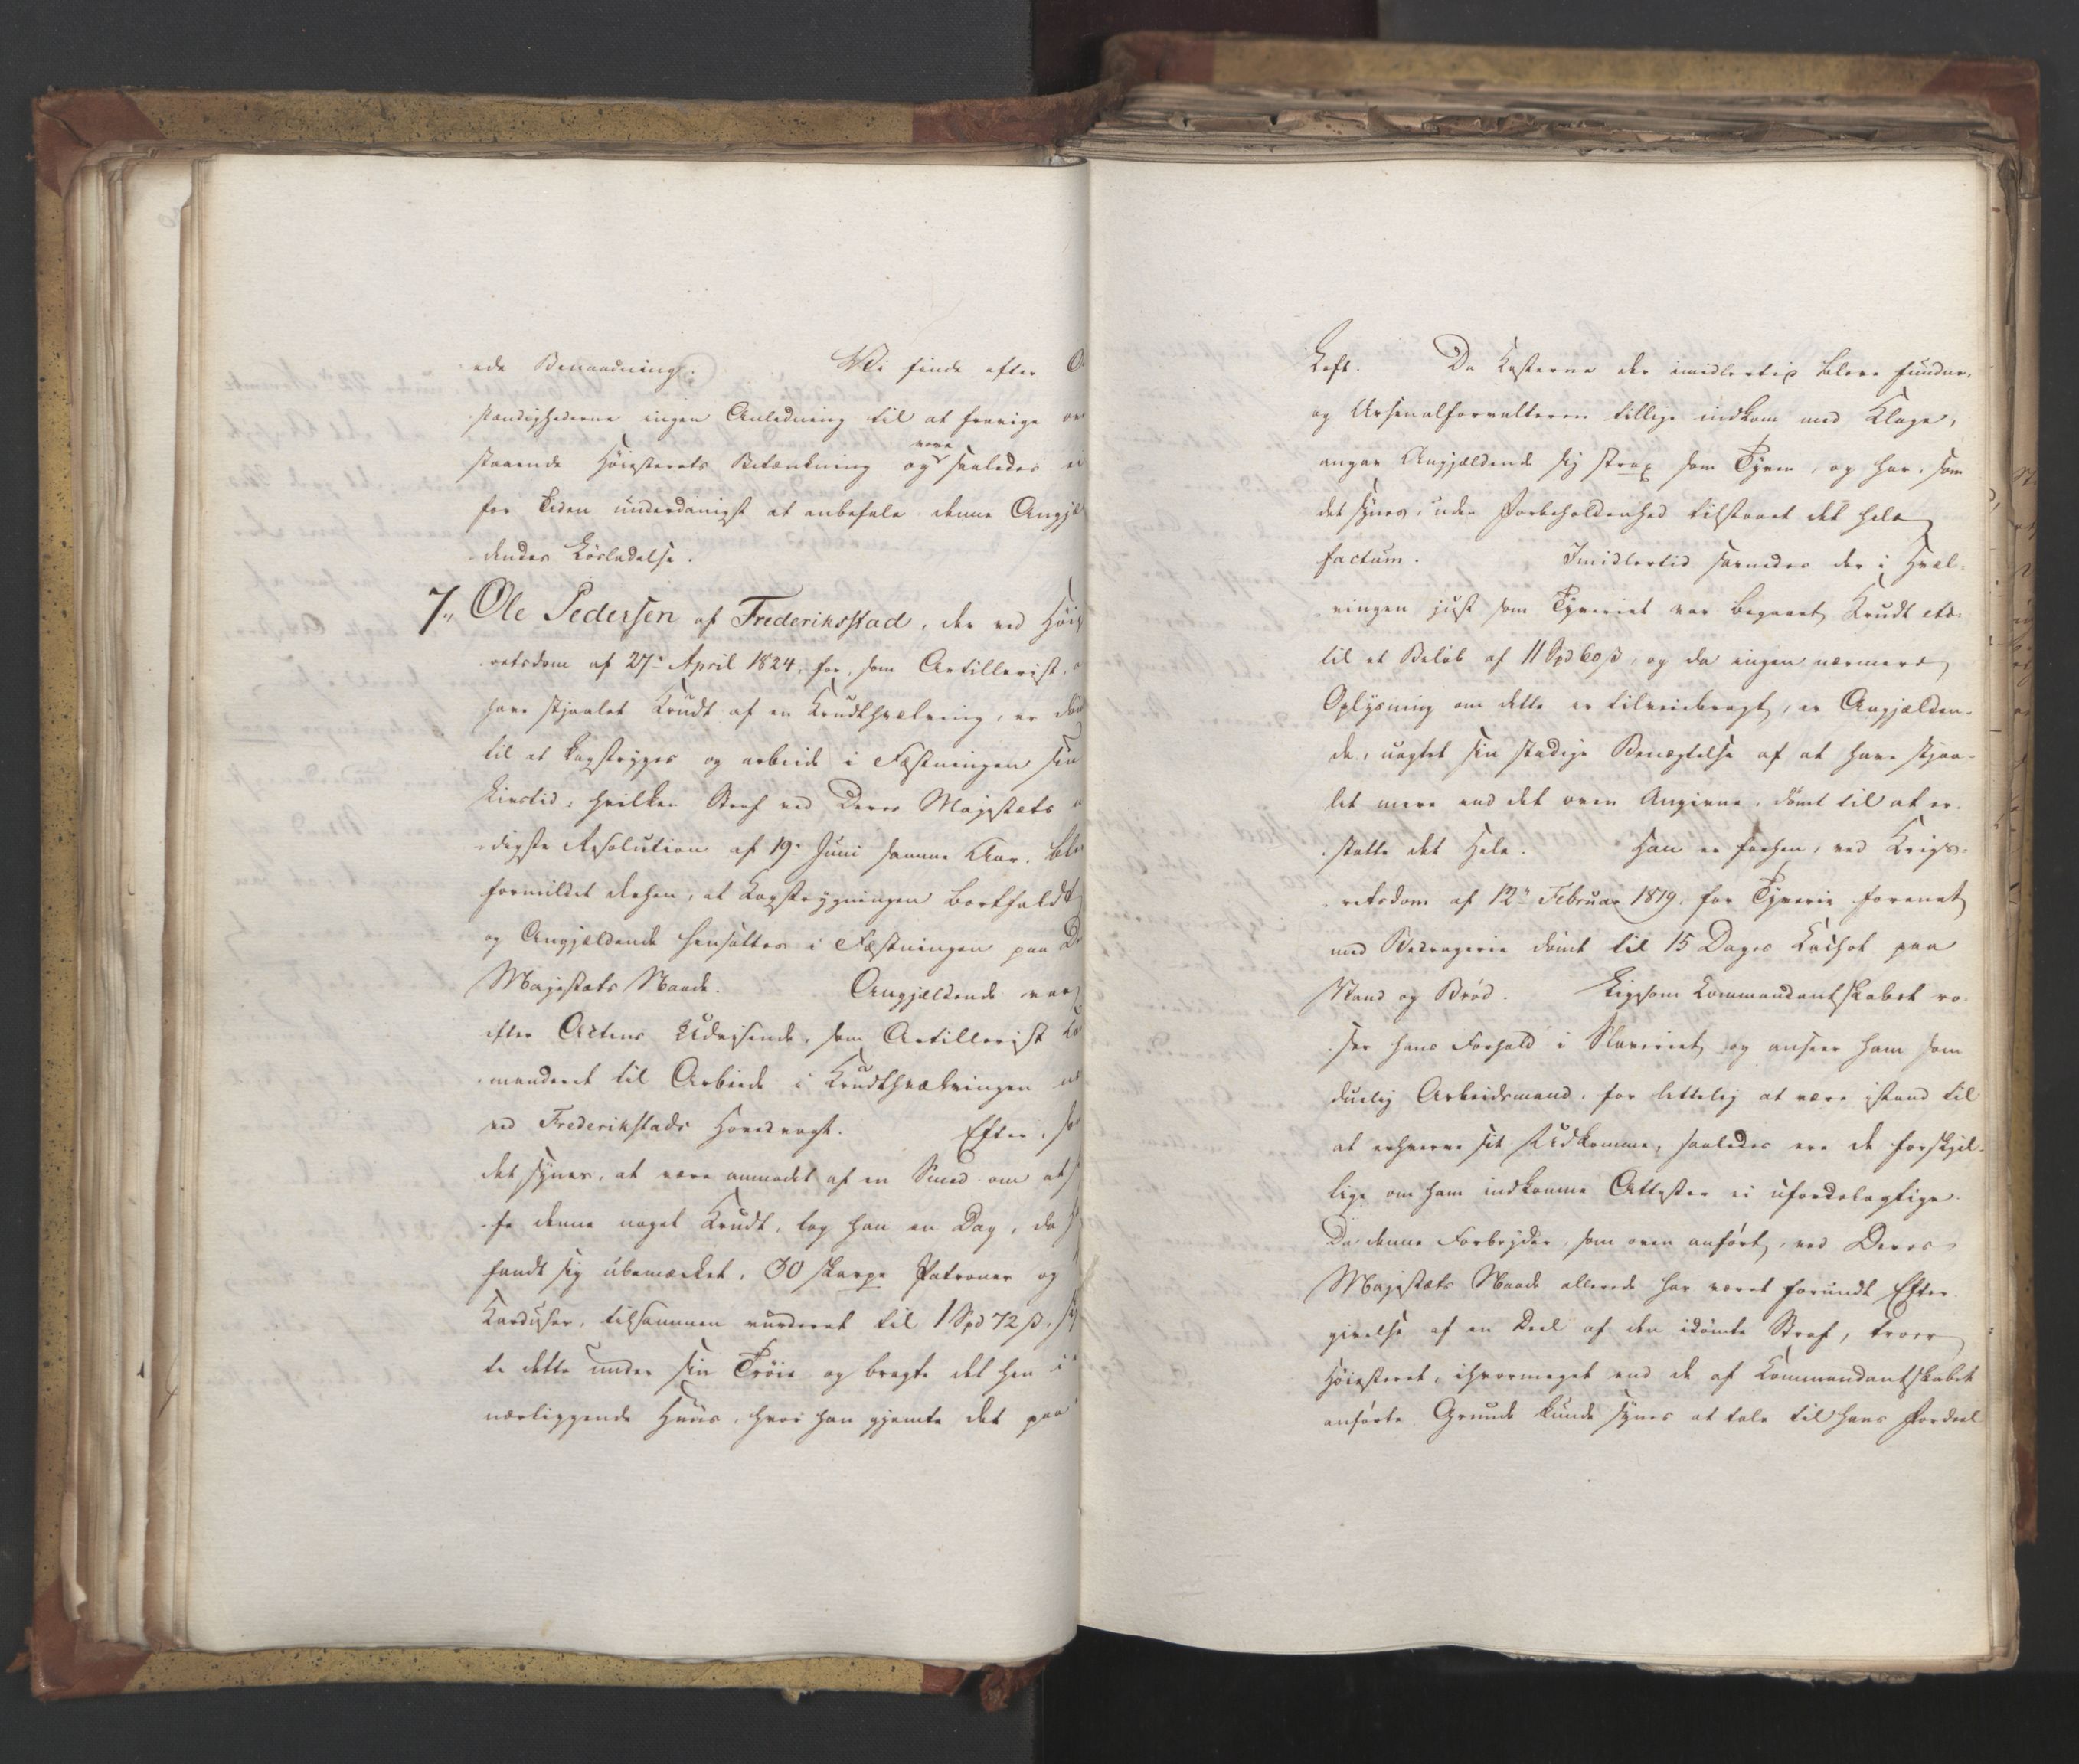 ede Benaadning. Vi finde efter O
stændighederne ingen Anledning til at fravige ov
staaende Høiesterets Betænkning og vove saaledes
for Tiden underdanigst at anbefale denne Angjæl
dendes Løsladelse.
7, Ole Pedersen af Frederiksstad, der ved Høie
retsdom af 27de April 1824, for, som Artillerist, a
have stjaalet Krudt af en Krudthvælving, er døm
til at kagstryges og arbeide i Fæstningen sin
Livstid, hvilken Straf ved Deres Majestæts n
digste Resolution af 19de Juni samme Aar, blev
formildet derhen, at Kagstrygningen bortfaldt
og Angjældende hensattes i Fæstningen paa De
Majestæts Naade. Angjældende var
efter Actens Udvisende, som Artillerist ko
manderet til Arbeide i Krudthvælvingen
ved Frederikstads Hovedvagt. Efter, som
det synes, at være anmodet af en Smed om at
fe denne noget Krudt, tog han en Dag, da
fandt sig ubemærket, 30 skarpe Patroner og
Karduser, tilsammen vurderet til 1 Spd 72 ß,
te dette under sin Trøie og bragte det hen i
nærliggende Huus, hvor han gjemte det paa
Loft. Da Kasterne der imidlertid bleve fundne,
og Arsenalforvalteren tillige indkom med Klage,
angav Angjældende sig strax som Tyven, og har, som
det synes, uden Forbeholdenhed tilstaaet det hele
factum. Imidlertid savnedes der i Hvæl-
vingen just som Tyveriet var begaaet, Krudt etc.
til et Beløb af 11 Spd 60 ß, og da ingen nærmere
Oplysning om dette er tilveiebragt, er Angjælden-
de, uagtet sin stadige Benægtelse af at have stjaa-
let mere end det oven Angivne, dømt til at er-
statte det Hele. Han er forhen, ved Krigs-
retsdom af 12te Februar 1819, for Tyverie forenet
med Bedragerie dømt til 15 Dages Kachot paa
Vand og Brød. Ligesom Kommandantskabet ro-
ser hans Forhold i Slaveriet og anseer ham som
duelig Arbeidsmand, for lettelig at være istand til
at erhverve sit Udkomme, saaledes ere de forskjel-
lige om ham indkomne Attester ei ufordelagtige.
Da denne Forbryder, som oven anført, ved Deres
Majestæts Naade allerede har været forundt Efter-
givelse af en Deel af den idømte Straf, troer
Høiesteret, ihvormeget end de af Kommandantskabet
anførte Grunde kunde synes at tale til hans Fordeel